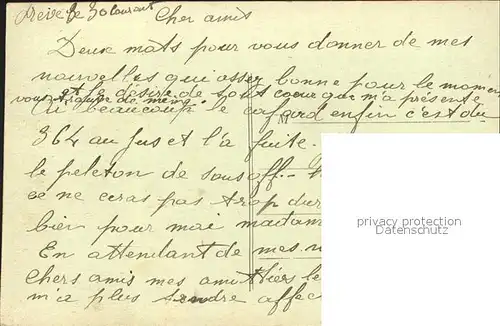 le 30 courant
Cher amis
Deux mots pour vous donner de mes
nouvelles qui asser bonne pour le momen
et je désire de tout coeur que m'a présente
vous trouve de meme.
ai beaucoup le cafard enfin c'est du
364 au jus et l'a fuite.
le peleton de sous off.
ce ne ceras pas trop dur
bien pour moi maitenan
En attendant de mes n
Chers amis mes amitiers le
m'a plus tendre affec
privacy protection
Datenschutz